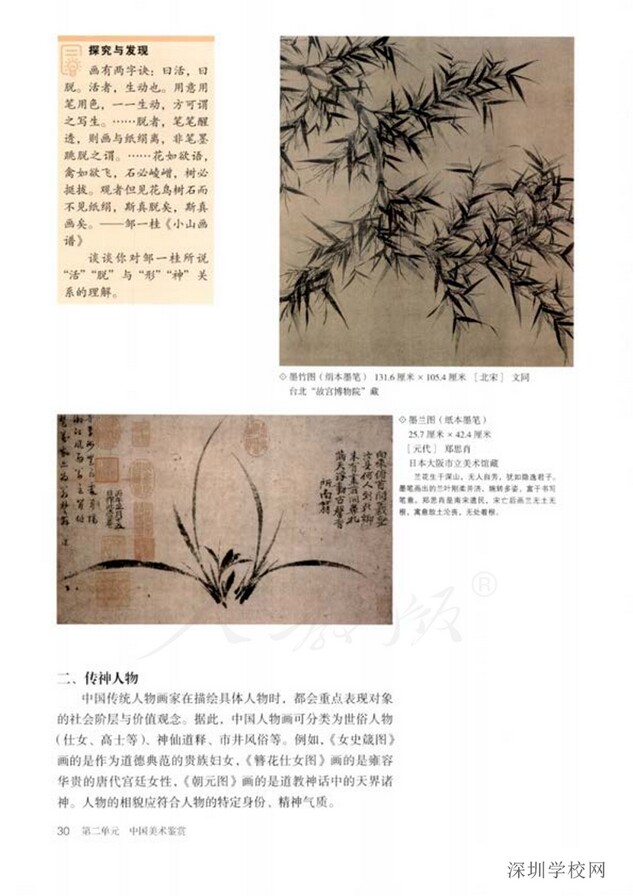 探究与发现
画有两字诀：曰活，曰
脱。活者，生动也。用意用
笔用色，一一生动，方可谓
之写生。……脱者，笔笔醒
透，则画与纸绢离，非笔墨
跳脱之谓。……花如欲语，
禽如欲飞，石必崚嶒，树必
挺拔。观者但见花鸟树石而
不见纸绢，斯真脱矣，斯真
画矣。——邹一桂《小山画
谱》
谈谈你对邹一桂所说
“活”“脱”与“形”“神”关
系的理解。
◇墨竹图（绢本墨笔） 131.6 厘米×105.4 厘米 ［北宋］ 文同
台北“故宫博物院”藏
◇墨兰图（纸本墨笔）
25.7 厘米×42.4 厘米
［元代］ 郑思肖
日本大阪市立美术馆藏
兰花生于深山，无人自芳，犹如隐逸君子。
墨笔画出的兰叶刚柔并济，婉转多姿，富于书写
笔意。郑思肖是南宋遗民，宋亡后画兰无土无
根，寓意故土沦丧，无处着根。
向来俯首问羲皇
汝是何人到此乡
未有画前开鼻孔
满天浮动古馨香
所南翁
人教版®
二、传神人物
中国传统人物画家在描绘具体人物时，都会重点表现对象
的社会阶层与价值观念。据此，中国人物画可分类为世俗人物
（仕女、高士等）、神仙道释、市井风俗等。例如，《女史箴图》
画的是作为道德典范的贵族妇女，《簪花仕女图》画的是雍容
华贵的唐代宫廷女性，《朝元图》画的是道教神话中的天界诸
神。人物的相貌应符合人物的特定身份、精神气质。
30 第二单元 中国美术鉴赏
深圳学校网